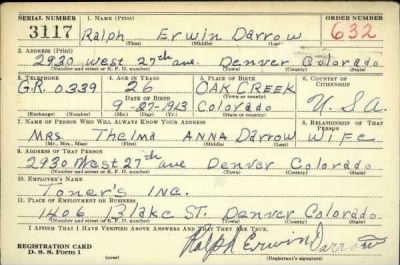 SERIAL NUMBER 1. NAME (Print) ORDER NUMBER
3117 Ralph Erwin Darrow 632
(First) (Middle) (Last)
2. ADDRESS (Print)
2930 West 27th ave. Denver Colorado
(Number and street or R. F. D. number) (Town) (County) (State)
3. TELEPHONE 4. AGE IN YEARS 5. PLACE OF BIRTH 6. COUNTRY OF CITIZENSHIP
G.R. 0339 26 OAK CREEK
DATE OF BIRTH (Town or county)
9-27-1913 Colorado U.S.A.
(Exchange) (Number) (Mo.) (Day) (Yr.) (State or country)
7. NAME OF PERSON WHO WILL ALWAYS KNOW YOUR ADDRESS 8. RELATIONSHIP OF THAT PERSON
Mrs. Thelma ANNA Darrow Wife
(Mr., Mrs., Miss) (First) (Middle) (Last)
9. ADDRESS OF THAT PERSON
2930 West 27th ave Denver Colorado
(Number and street or R. F. D. number) (Town) (County) (State)
10. EMPLOYER'S NAME
Toner's Inc.
11. PLACE OF EMPLOYMENT OR BUSINESS
1406 Blake ST. Denver Colorado.
(Number and street or R. F. D. number) (Town) (County) (State)
I AFFIRM THAT I HAVE VERIFIED ABOVE ANSWERS AND THAT THEY ARE TRUE.
REGISTRATION CARD
D. S. S. Form 1 (over) Ralph Erwin Darrow
(Registrant's signature)